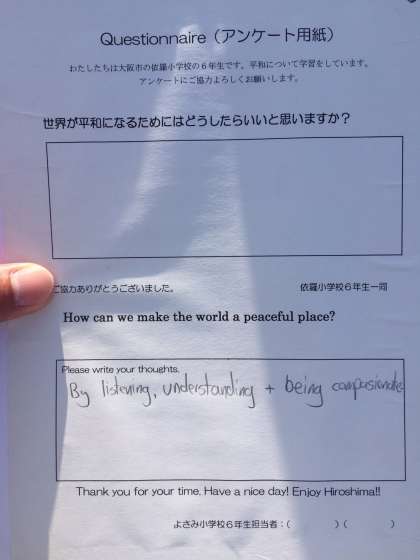 Questionnaire（アンケート用紙）
わたしたちは大阪市の依羅小学校の６年生です。平和について学習をしています。
アンケートにご協力よろしくお願いします。
世界が平和になるためにはどうしたらいいと思いますか？
ご協力ありがとうございました。 依羅小学校６年生一同
How can we make the world a peaceful place?
Please write your thoughts.
By listening, understanding + being compasionate
Thank you for your time. Have a nice day! Enjoy Hiroshima!!
よさみ小学校６年生担当者：（　　　　）（　　　　）